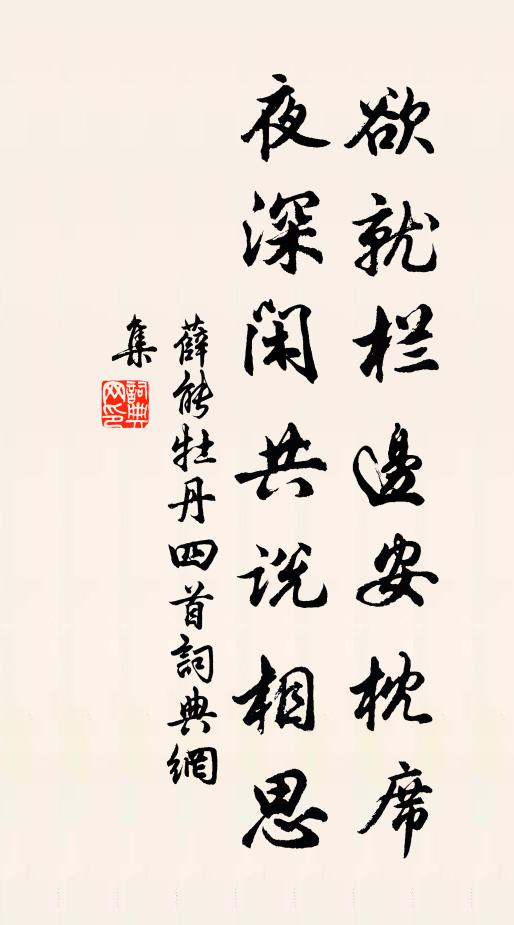 欲就栏邊安枕席
夜深闲共说相思
薛能牡丹四首詞典網
集
詞典
网印